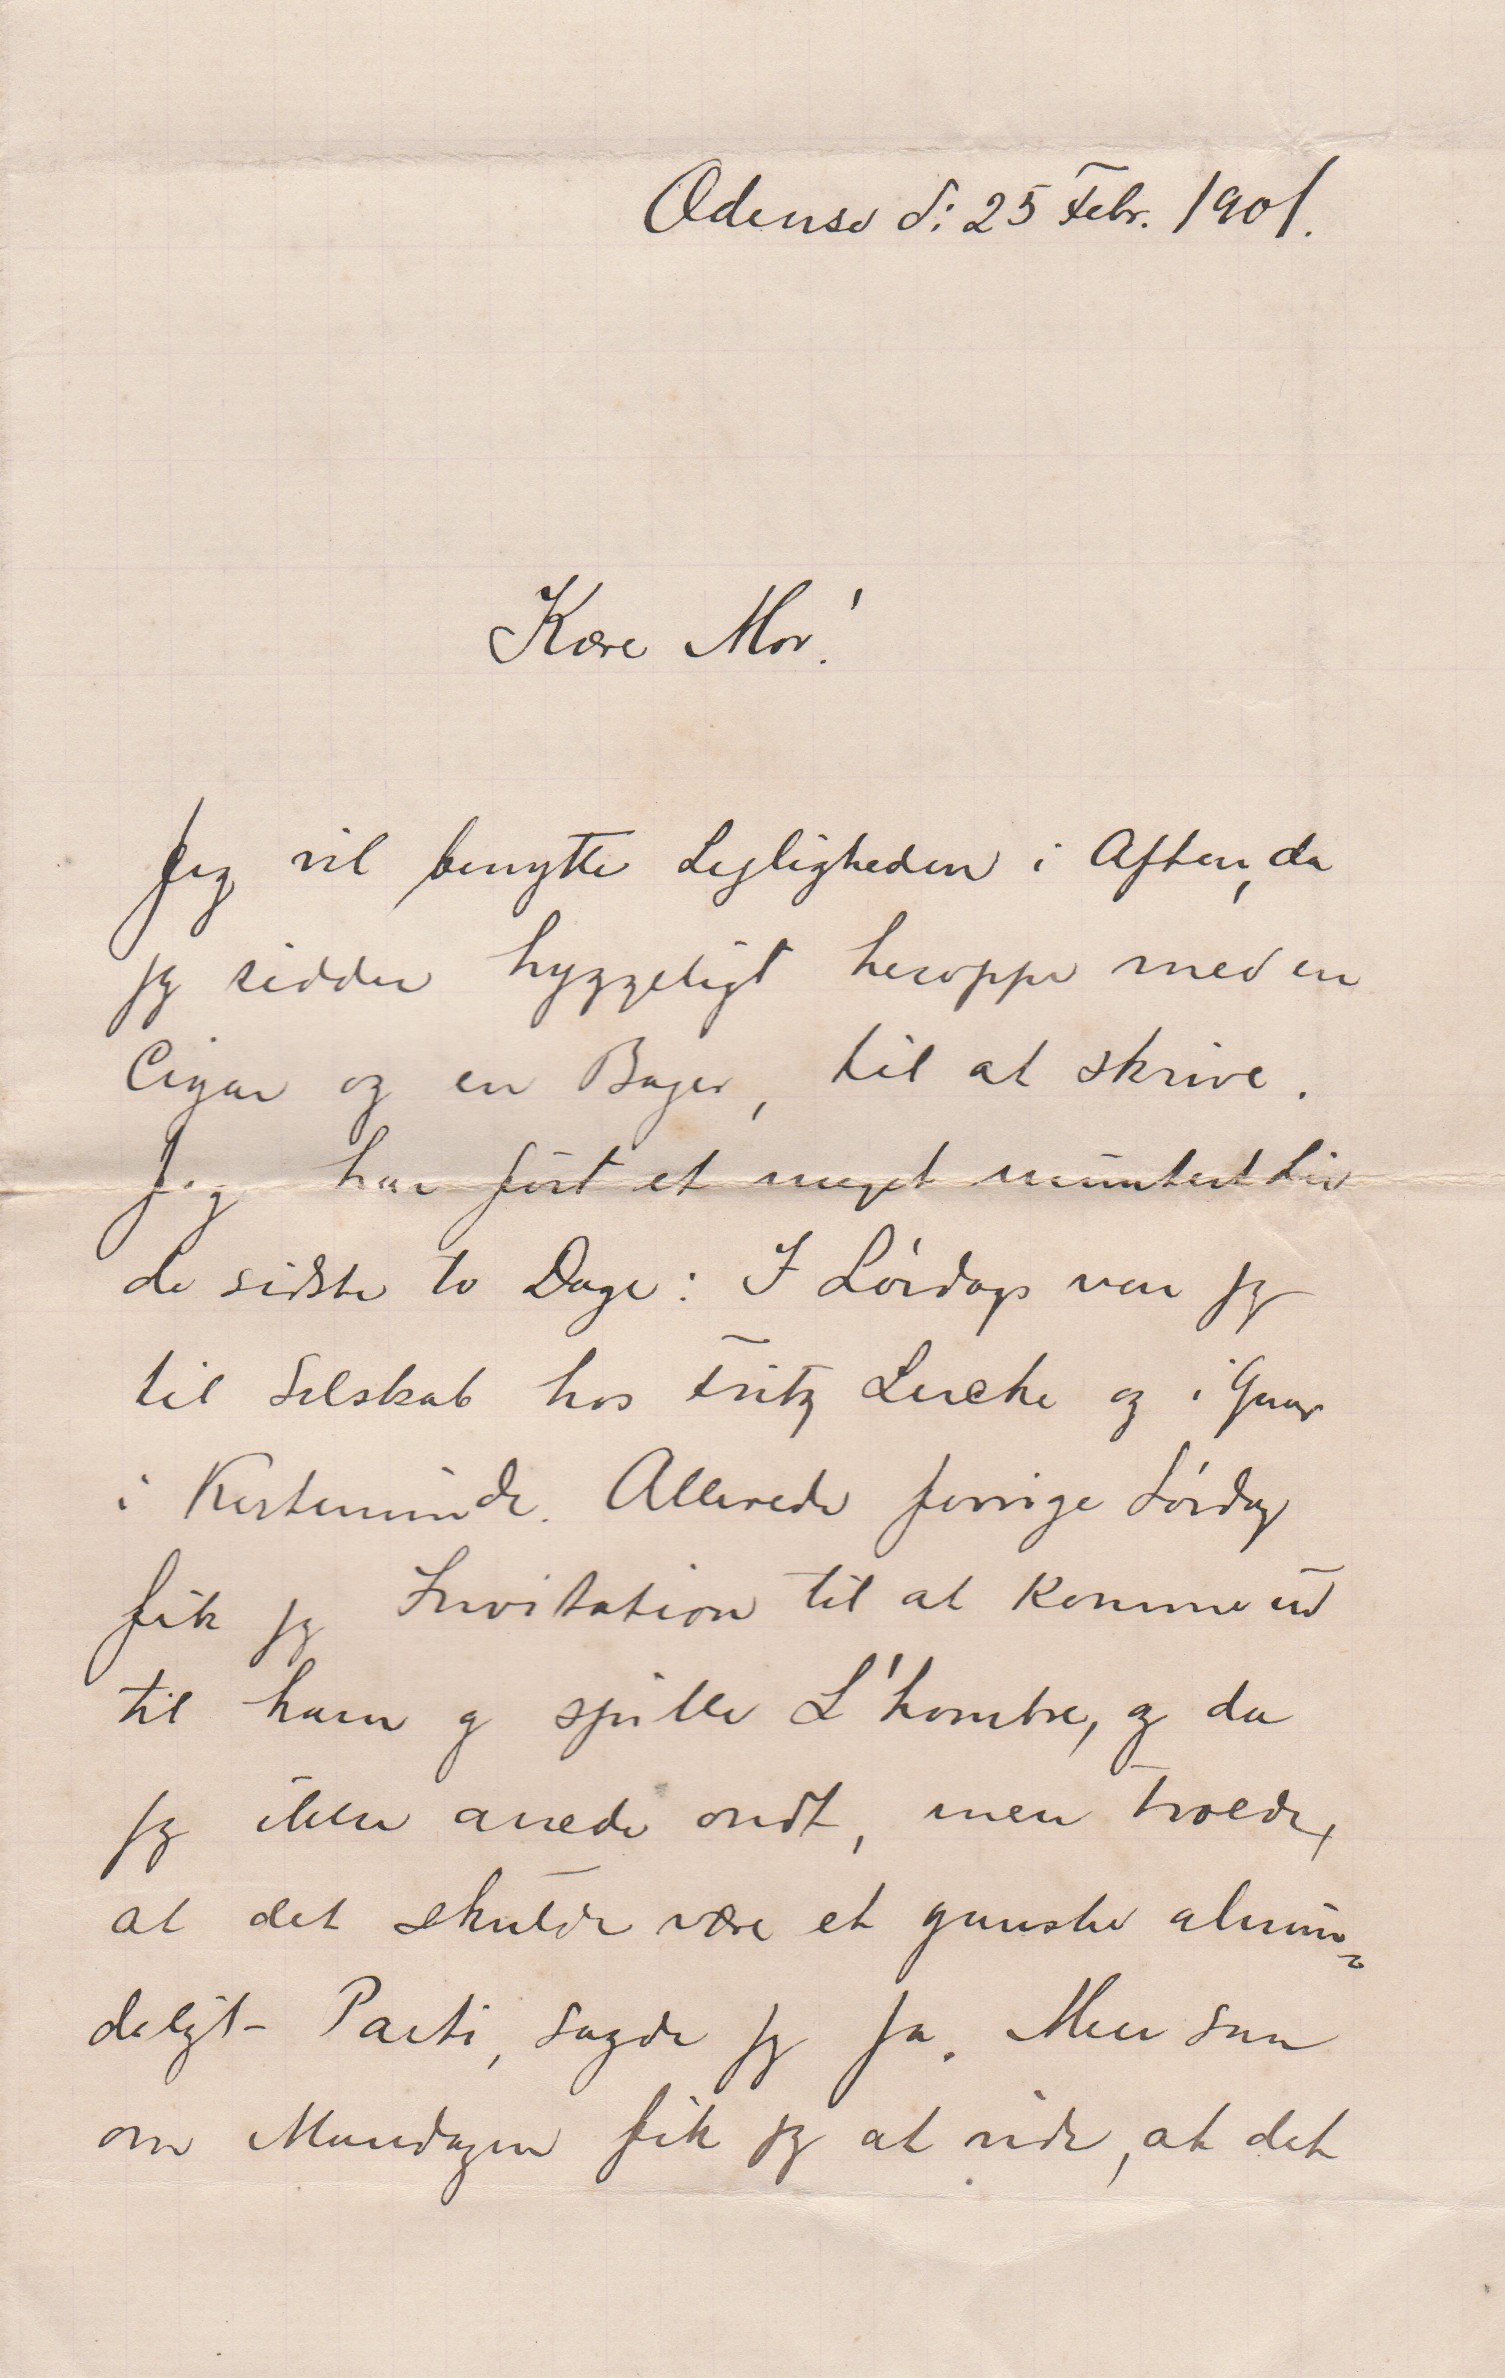 Odense d: 25 Febr. 1901.
Kære Mor!
Jeg vil benytte Lejligheden i Aften, da
jeg sidder hyggeligt heroppe med en
Cigar og en Bajer, til at skrive.
Jeg har ført et meget muntert Liv
de sidste to Dage: I Lørdags var jeg
til Selskab hos Fritz Lerche og i Gaar
i Kerteminde. Allerede forrige Lørdag
fik jeg Invitation til at komme ud
til ham og spille L'hombre, og da
jeg ikke anede ondt, men troede,
at det skulde være et ganske almin=
deligt Parti, sagde jeg ja. Men saa
om Mandagen fik jeg at vide, at det